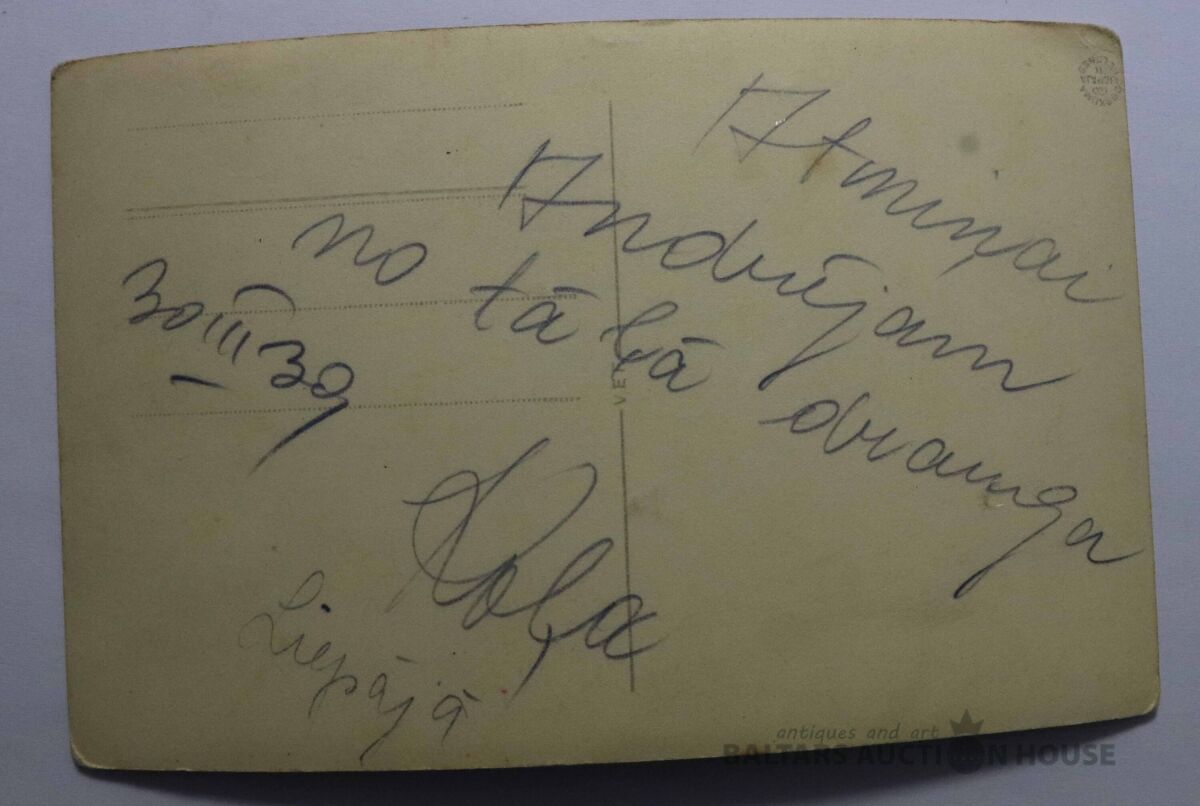 Atmiņai
Andrējam
no tālā drauga
30 III 39
Koļa
Liepājā
antiques and art
BALTARS AUCTION HOUSE